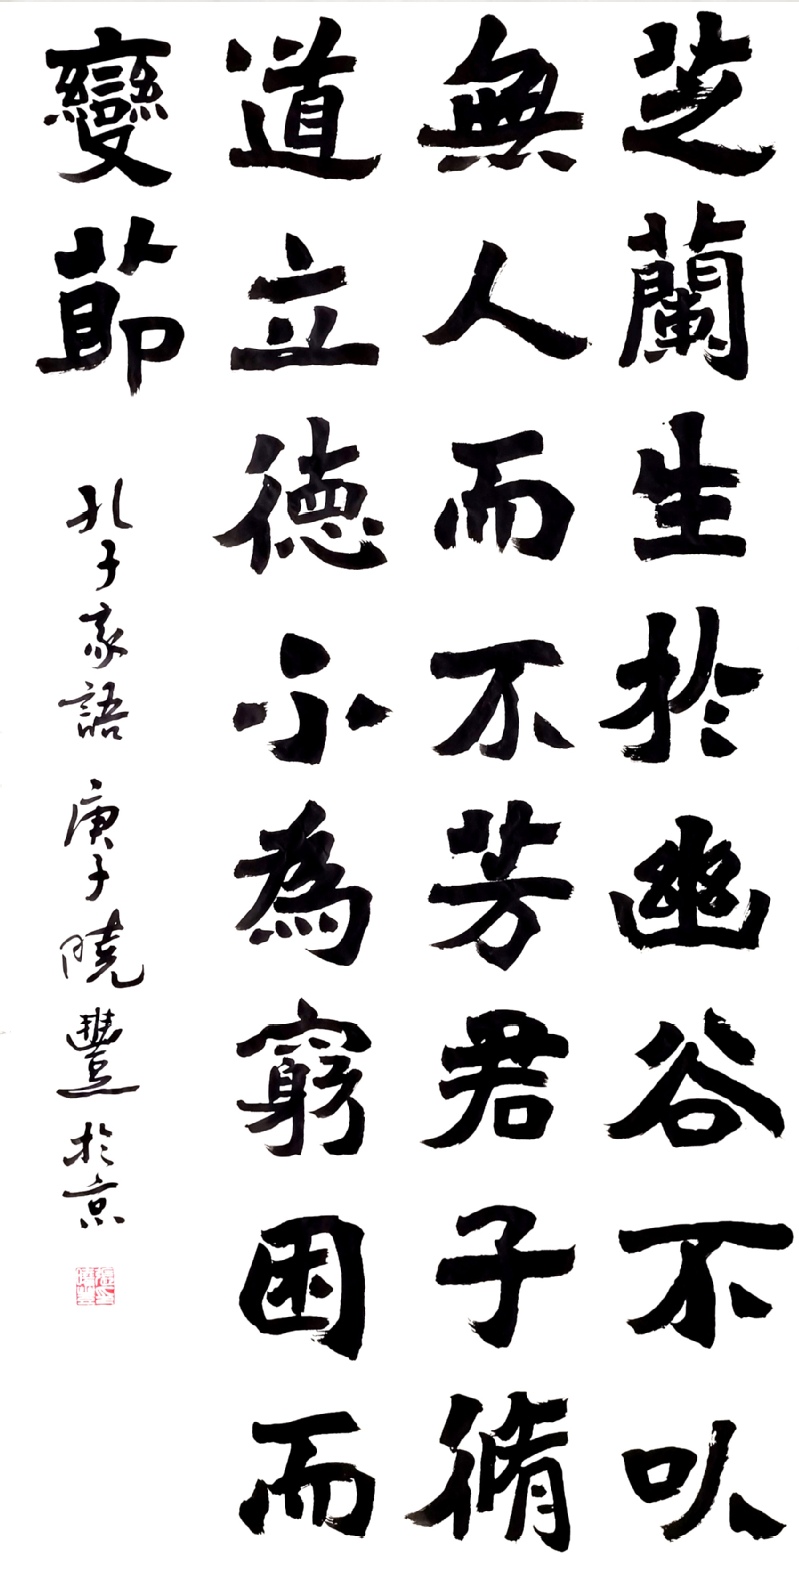 芝蘭生於幽谷不以
無人而不芳君子脩
道立德不為窮困而
變節
孔子家語 庚子曉豐於京